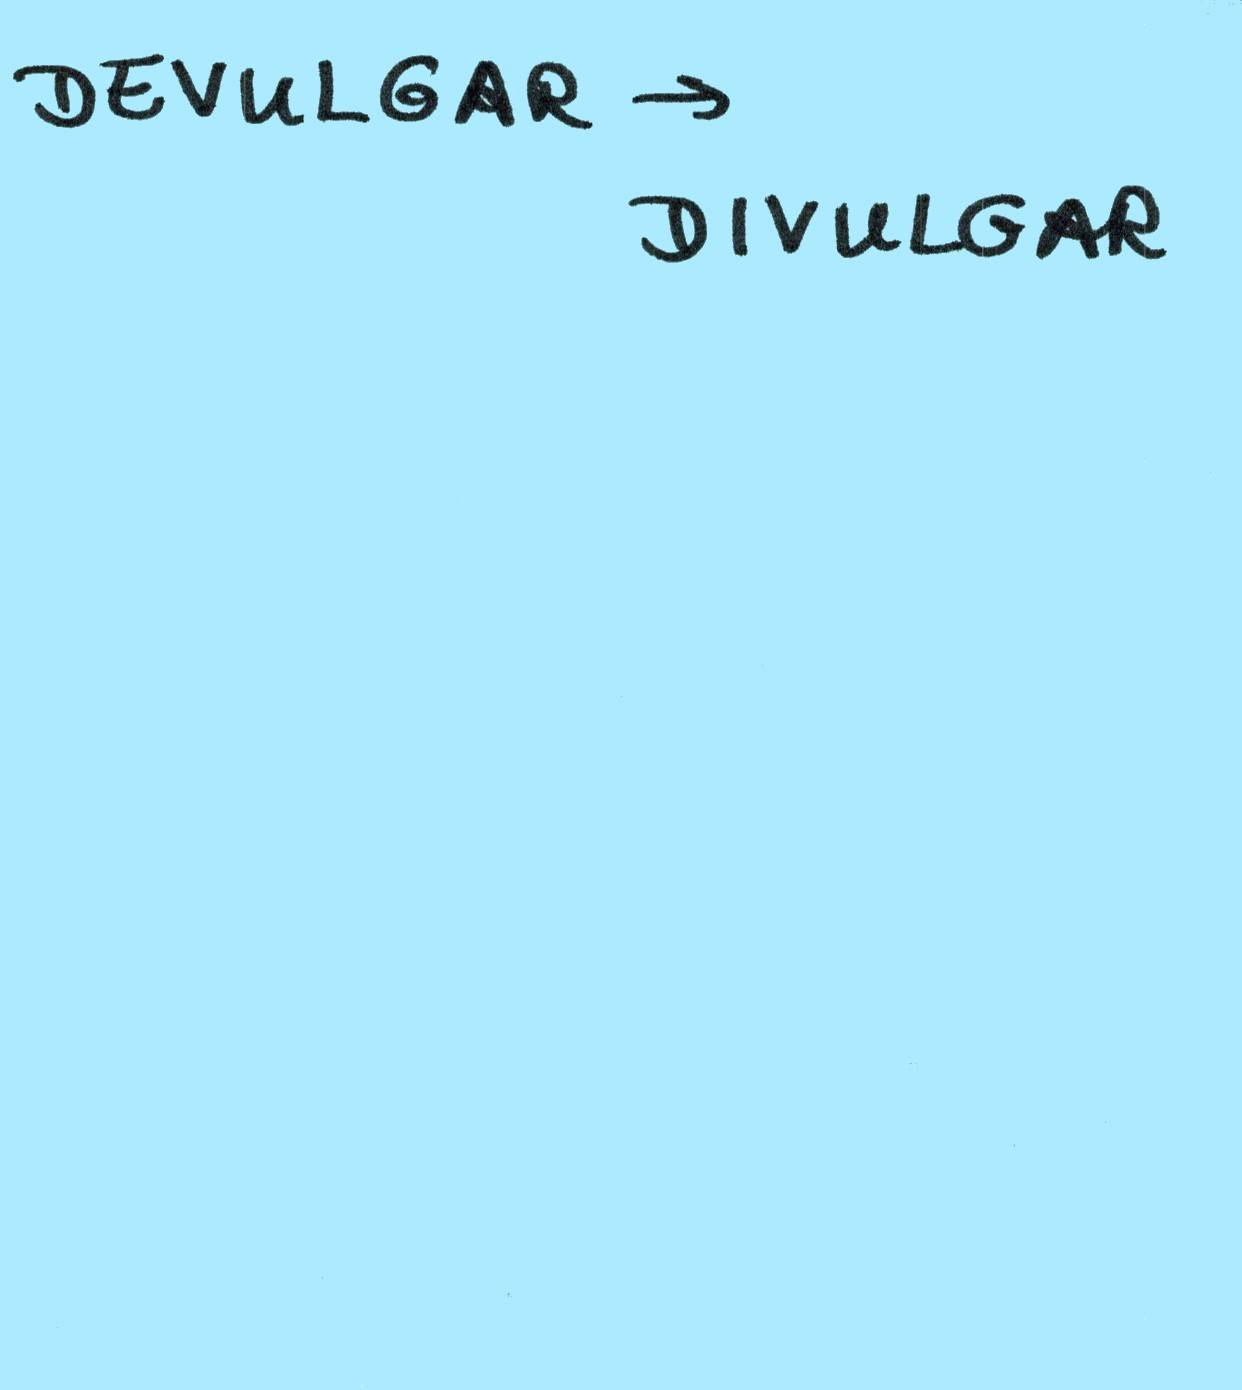 DEVULGAR →
DIVULGAR